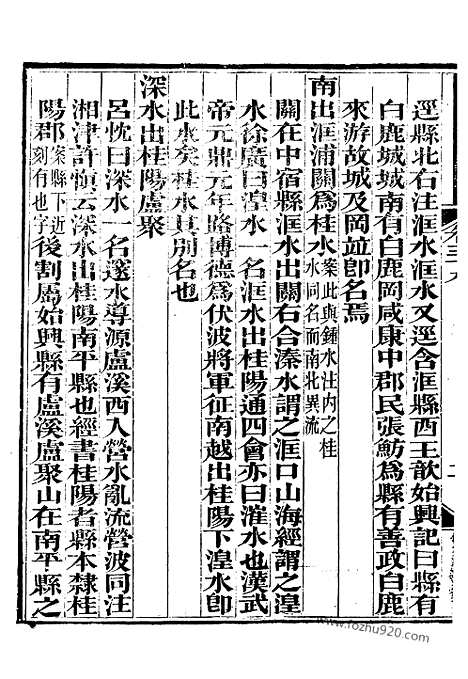 逕縣北右注洭水洭水又逕含洭縣西王歆始興記曰縣有
白鹿城城南有白鹿岡咸康中郡民張魴爲縣有善政白鹿
來游故城及岡並卽名焉
南出洭浦關爲桂水案此與鍾水注內之桂水同名而南北異流
關在中宿縣洭水出關右合溱水謂之洭口山海經謂之湟
水徐廣曰湟水一名洭水出桂陽通四會亦曰漼水也漢武
帝元鼎元年路博德爲伏波將軍征南越出桂陽下湟水卽
此水矣桂水其別名也
深水出桂陽盧聚
呂忱曰深水一名邃水導源盧溪西入營水亂流營波同注
湘津許愼云深水出桂陽南平縣也經書桂陽者縣本隸桂
陽郡案縣下近刻有也字後割屬始興縣有盧溪盧聚山在南平縣之
www.fozhu920.com